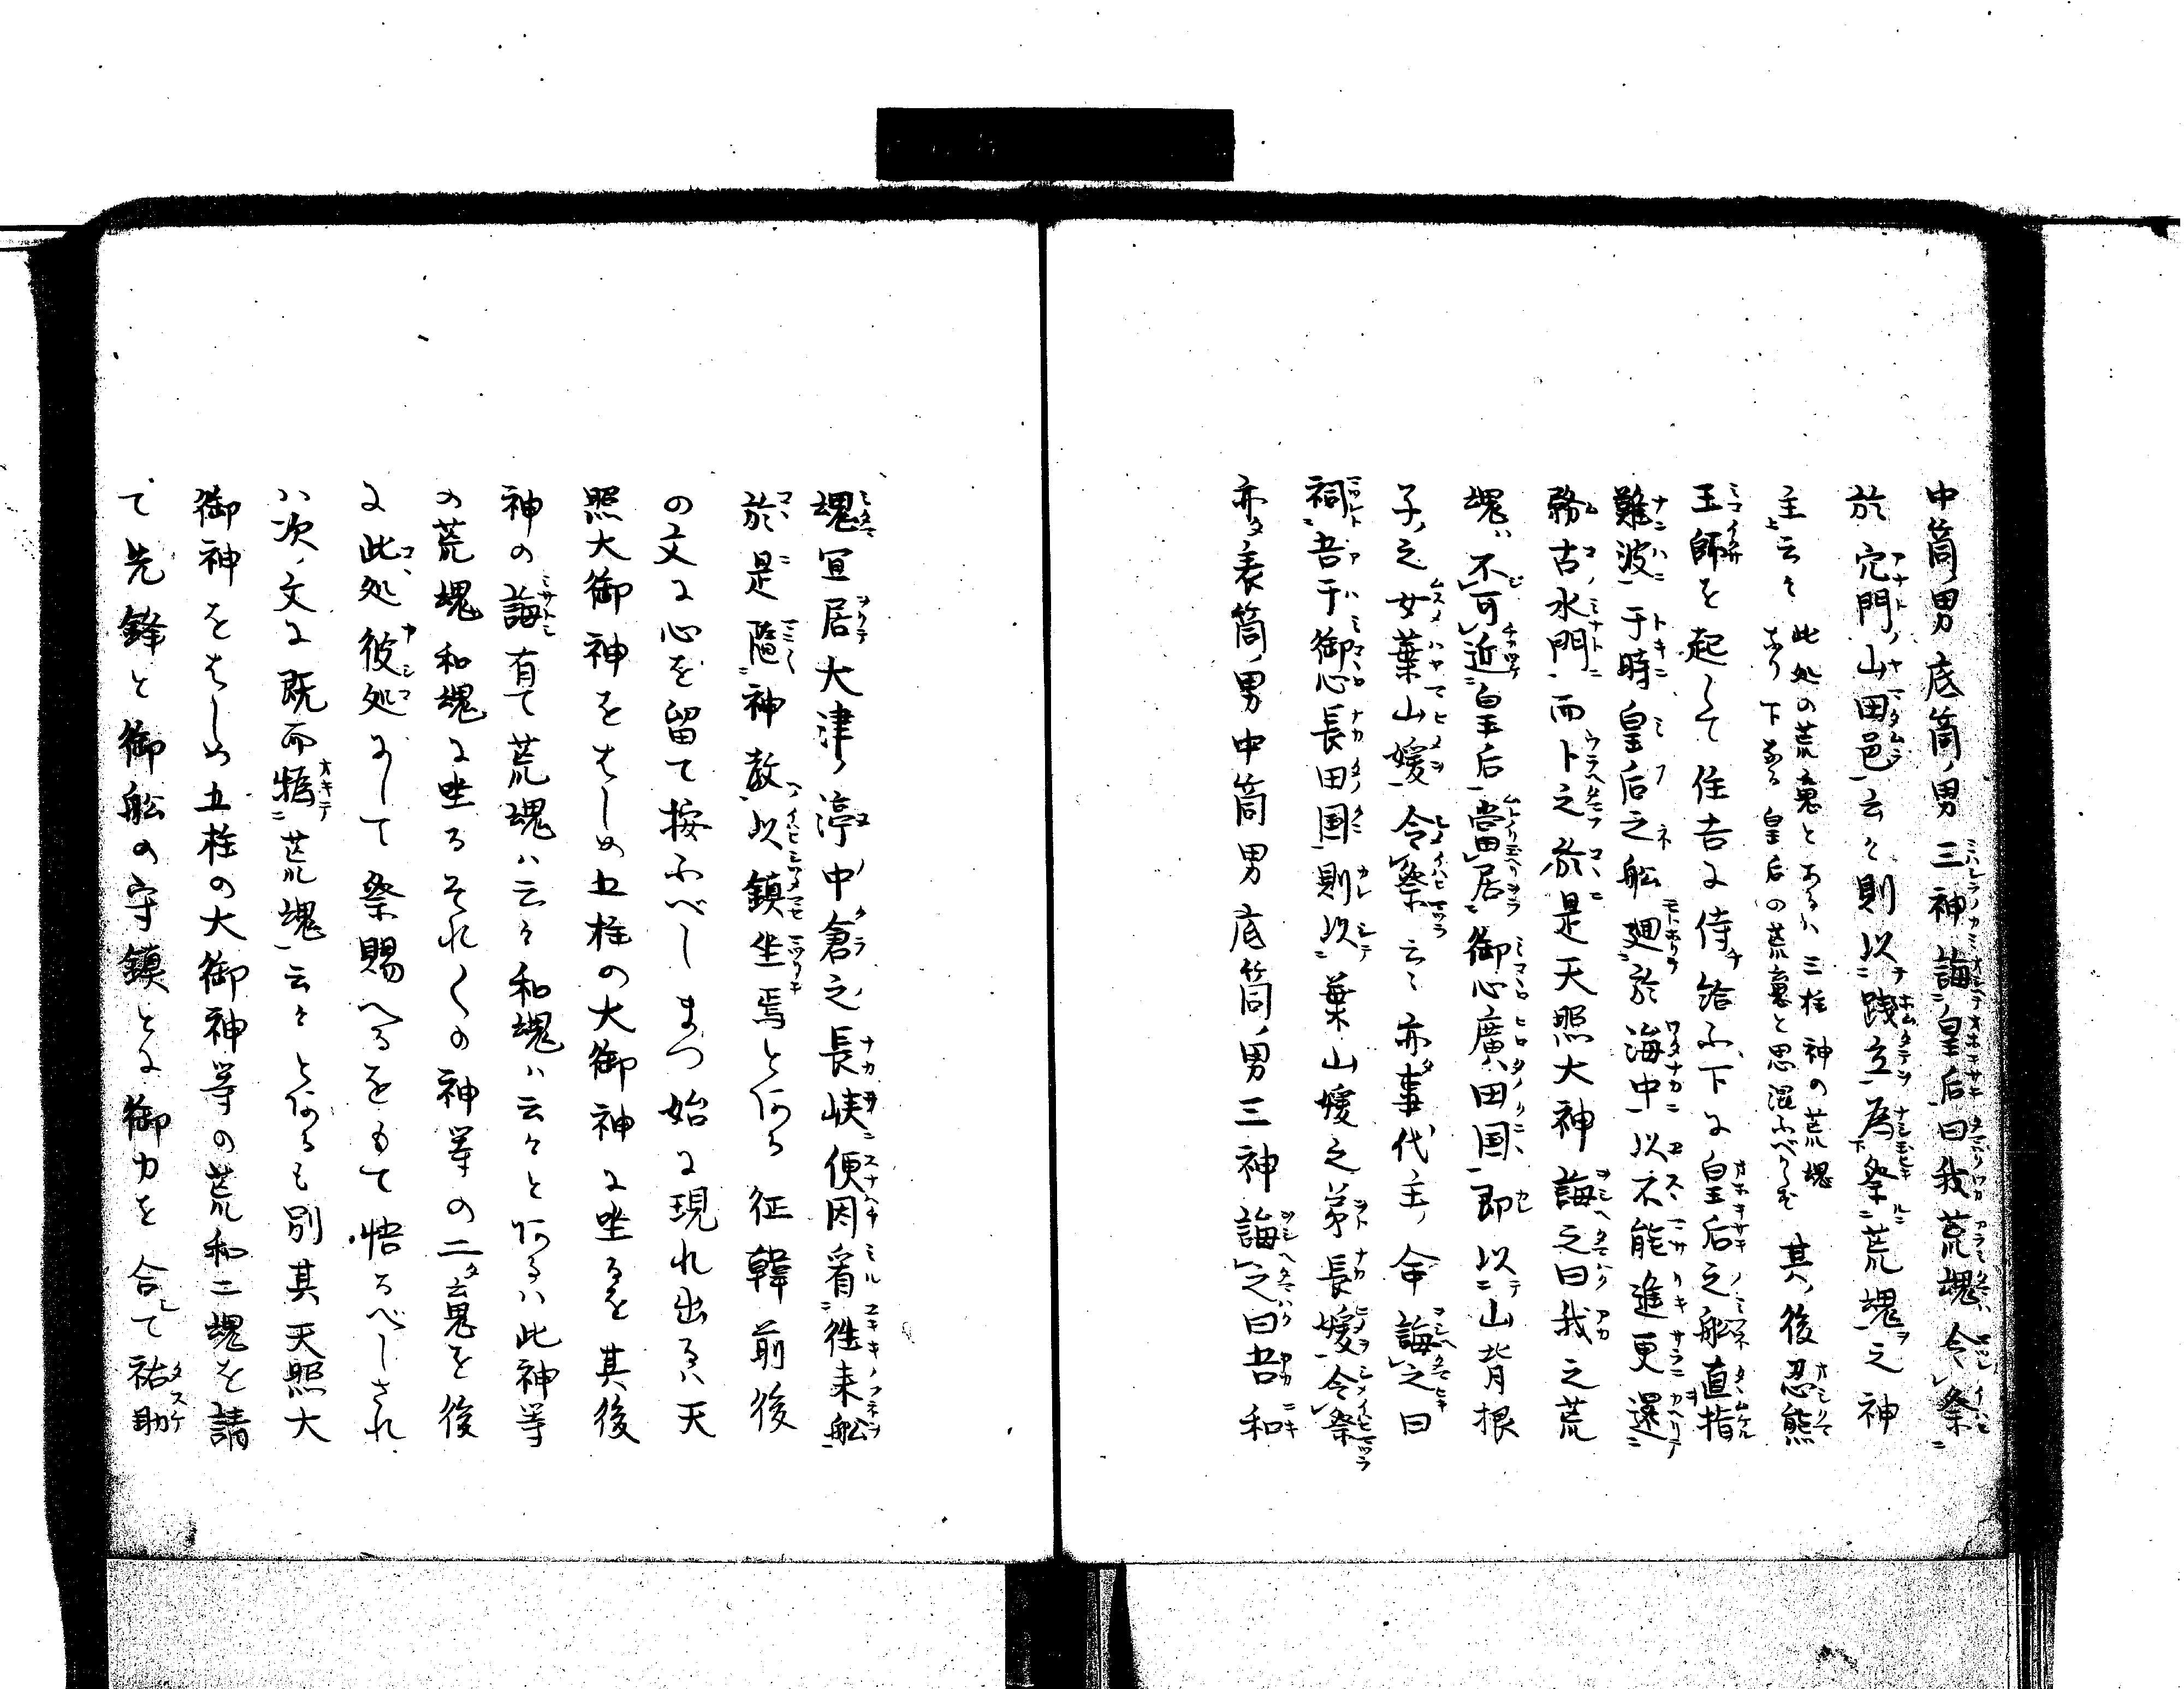 中筒ノ男底筒ノ男三神誨皇后曰我荒魂令祭
於穴門ノ山田邑云々則以践立為祭荒魂之神
主云々此処の荒魂とあるハ三柱神の荒魂
なり下なる皇后の荒魂と思混ふべからず其ノ後忍熊
王師を起して住吉に待給ふ下に皇后之船直指
難波于時皇后之船廻於海中以不能進更還
務古水門而卜之於是天照大神誨之曰我之荒
魂ハ不可近皇后當居御心廣田国即以山背根
子ノ之女葉山媛令祭云々亦事代主ノ命誨之曰
祠吾于御心長田国則以葉山媛之弟長媛令祭
亦表筒ノ男中筒男底筒ノ男三神誨之曰吾和
魂宜居大津ノ渟中倉之長峡便因看往来船
於是隨神教以鎮坐焉と何る征韓前後
の文に心を留て按ふべしまつ始に現れ出るハ天
照大御神をはしめ五柱の大御神に坐るを其後
神の誨有て荒魂ハ云々和魂ハ云々と何るハ此神等
の荒魂和魂に坐るそれ〱の神等の二魂を後
に此処彼処にして祭賜へるをもて悟るべしされ
ハ次ノ文に既而撝荒魂云々と何るも別其天照大
御神をはしめ五柱の大御神等の荒和二魂を請
て先鋒と御船の守鎮とに御力を合て祐助